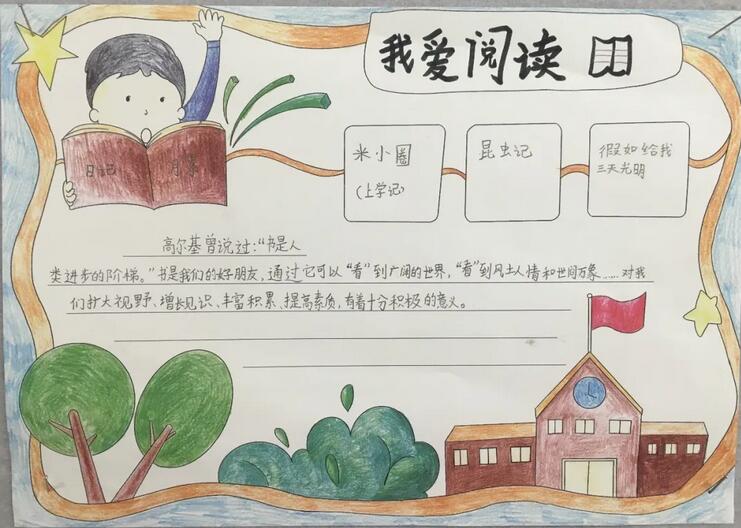 我爱阅读
日记
米小圈
(上学记)
昆虫记
假如给我
三天光明
高尔基曾说过:“书是人
类进步的阶梯。”书是我们的好朋友,通过它可以“看”到广阔的世界,“看”到风土人情和世间万象……对我
们扩大视野、增长见识、丰富积累、提高素质,有着十分积极的意义。